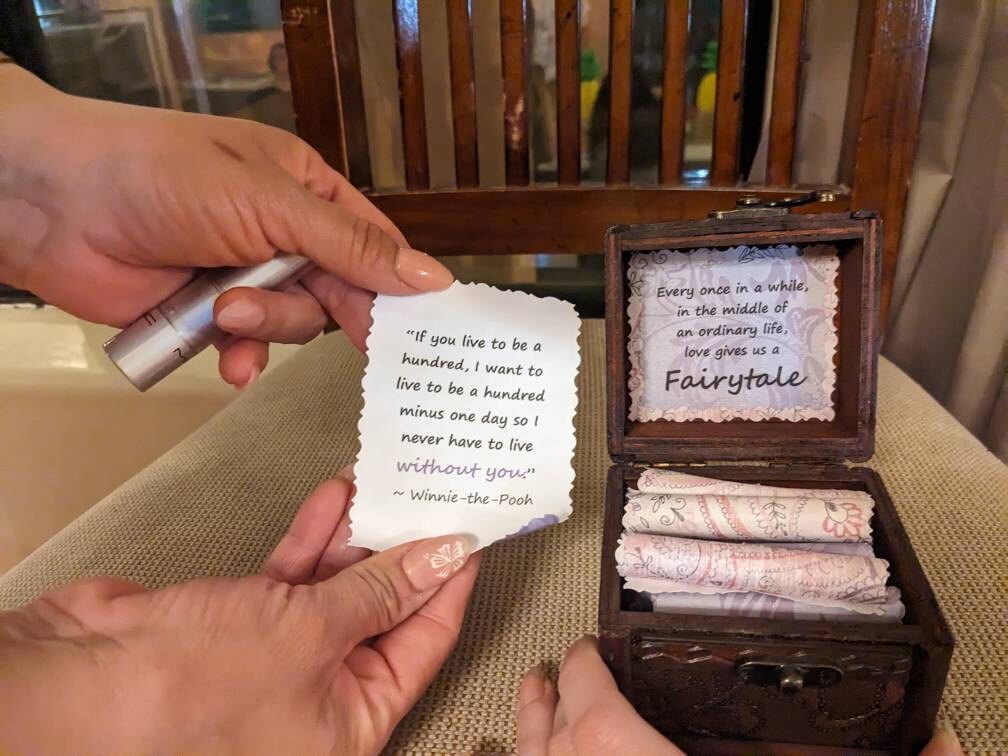 “If you live to be a
hundred, I want to
live to be a hundred
minus one day so I
never have to live
without you.”
~ Winnie-the-Pooh
Every once in a while,
in the middle of
an ordinary life,
love gives us a
Fairytale